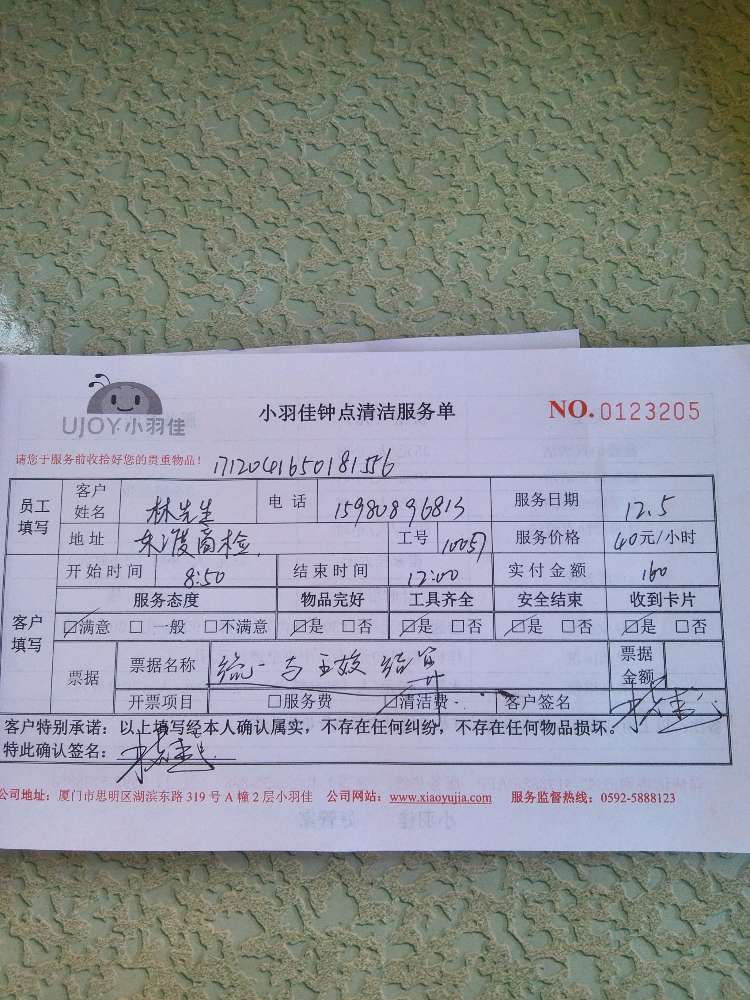 UJOY·小羽佳
小羽佳钟点清洁服务单
NO.0123205
请您于服务前收拾好您的贵重物品！
1712041650181556
员工填写 客户姓名 林先生 电话 15980896813 服务日期 12.5
地址 东渡商检 工号 10057 服务价格 40元/小时
开始时间 8:50 结束时间 12:00 实付金额 160
客户填写 服务态度 物品完好 工具齐全 安全结束 收到卡片
☑满意 □一般 □不满意 ☑是 □否 ☑是 □否 ☑是 □否 ☑是 □否
票据 票据名称 统一与王姣结算 票据金额
开票项目 □服务费 ☑清洁费 客户签名
客户特别承诺：以上填写经本人确认属实，不存在任何纠纷，不存在任何物品损坏。
特此确认签名：
公司地址：厦门市思明区湖滨东路 319 号 A 幢 2 层小羽佳 公司网站：www.xiaoyujia.com 服务监督热线：0592-5888123